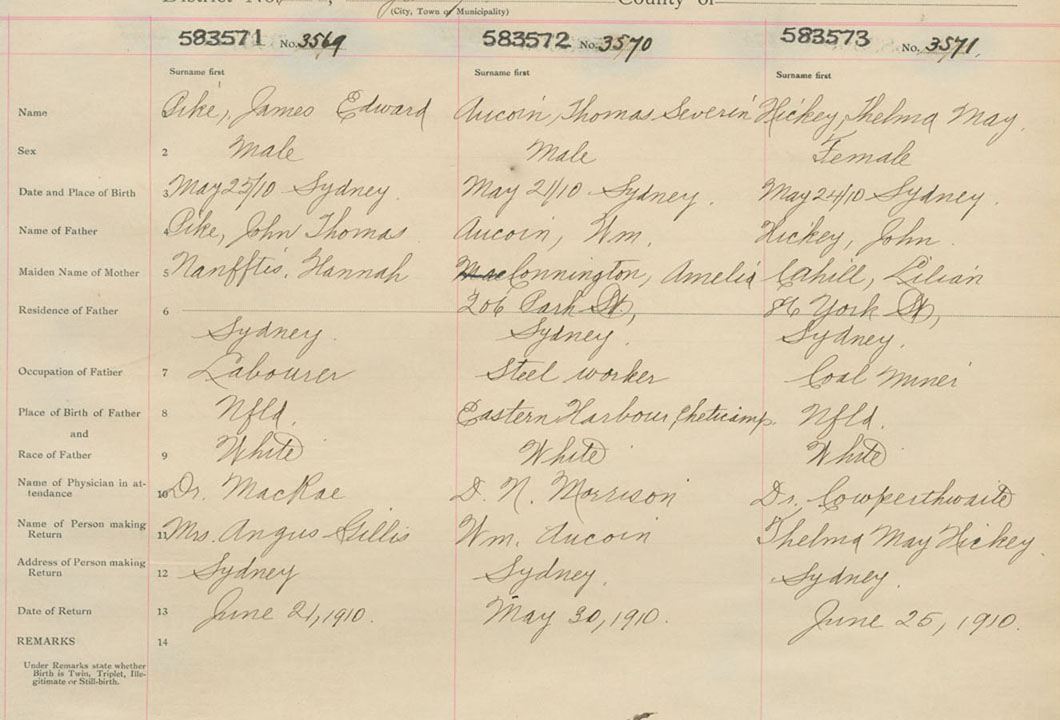 (City, Town or Municipality)
583571 No. 3569 583572 No. 3570 583573 No. 3571.
Surname first Surname first Surname first
Name Pike, James Edward Aucoin, Thomas Severin Hickey, Thelma May.
Sex 2 Male Male Female
Date and Place of Birth 3 May 25/10 Sydney. May 21/10 Sydney. May 24/10 Sydney.
Name of Father 4 Pike, John Thomas Aucoin, Wm. Hickey, John.
Maiden Name of Mother 5 Hannah Connington, Amelia Cahill, Lilian
Residence of Father 6 206 Park St, 86 York St,
Sydney. Sydney. Sydney.
Occupation of Father 7 Labourer Steel worker Coal Miner
Place of Birth of Father 8 Nfld. Eastern Harbour Cheticamp. Nfld.
and
Race of Father 9 White White White
Name of Physician in at-
tendance 10 Dr. MacRae D. N. Morrison Dr. Cowperthwaite
Name of Person making
Return 11 Mrs. Angus Gillis Wm. Aucoin Thelma May Hickey.
Address of Person making
Return 12 Sydney Sydney. Sydney.
Date of Return 13 June 21, 1910. May 30, 1910. June 25, 1910.
REMARKS 14
Under Remarks state whether
Birth is Twin, Triplet, Ille-
gitimate or Still-birth.